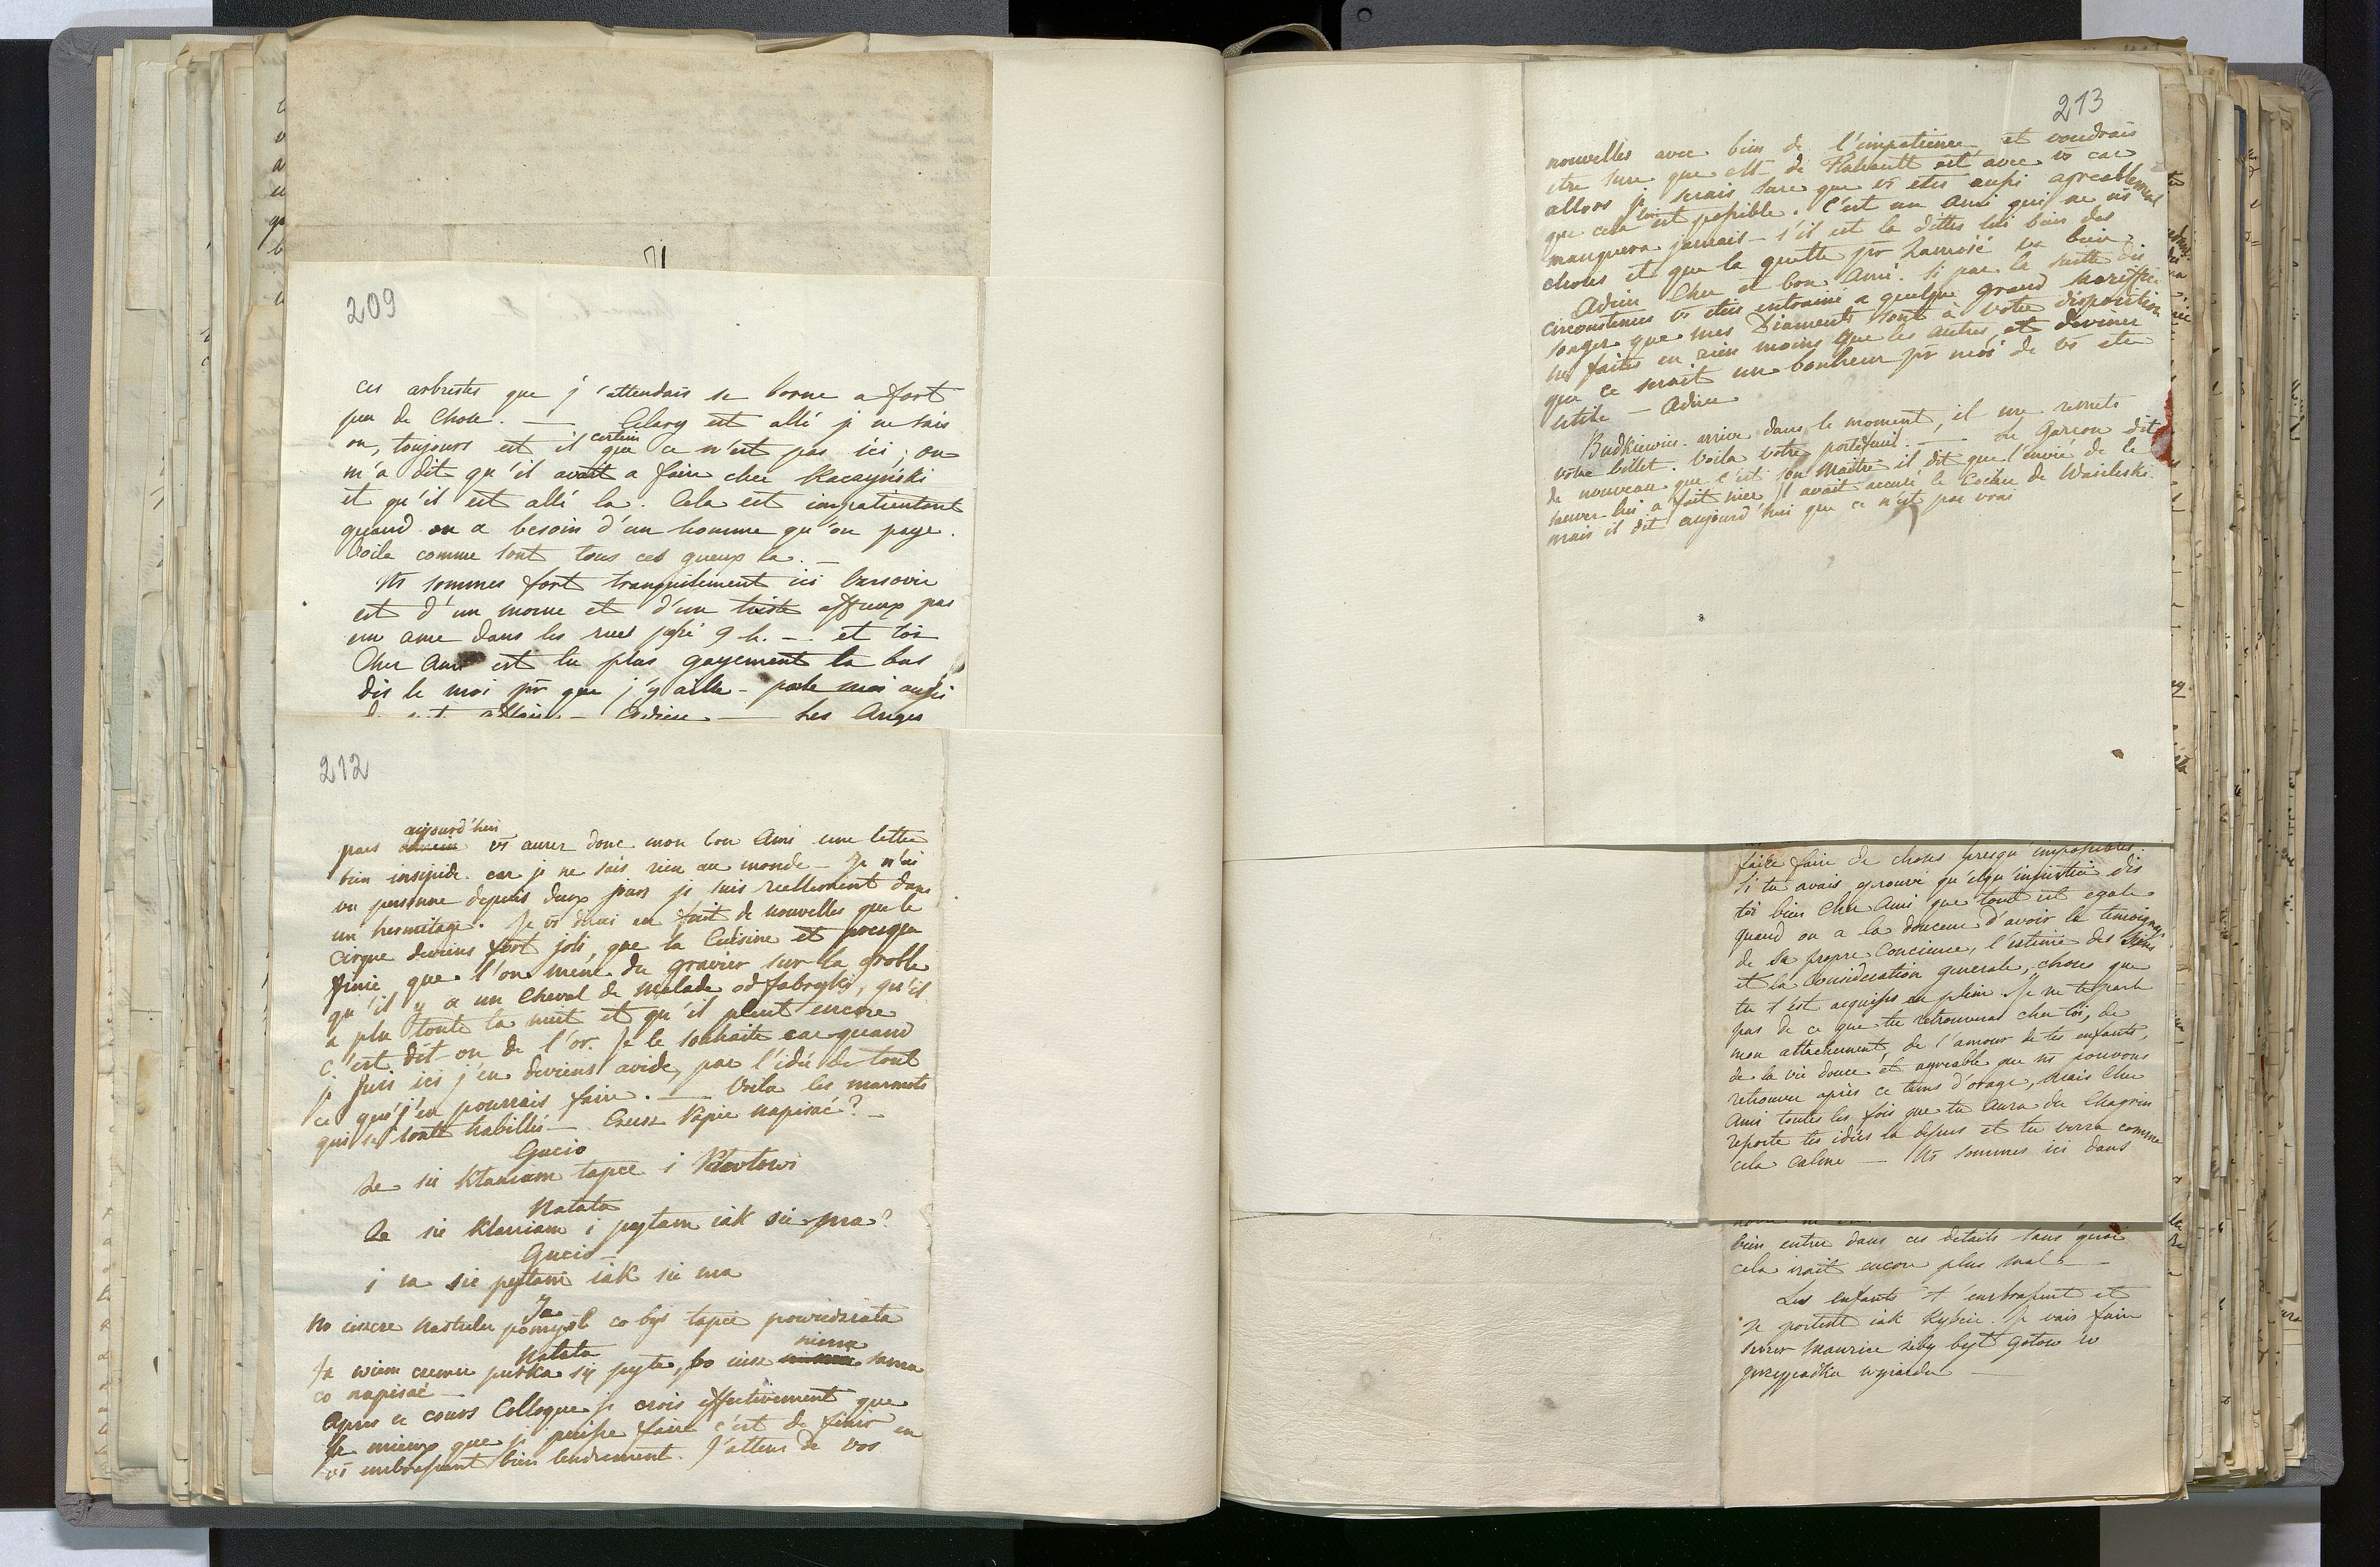 209
ces arbustes que j'attendais se borne a fort
peu de chose. — Clary est allé je ne sais
ou, toujours est il certain que ce n'est pas ici; on
m'a dit qu'il avait a faire chez Raczyński
et qu'il est allé la. Cela est impatientant
quand on a besoin d'un homme qu'on paye.
Voila comme sont tous ces gueux la. —
Ns sommes fort tranquilement ici Varsovie
est d'un morne et d'un triste affreux pas
une ame dans les rues passé 9 h. — et toi
Cher Ami est tu plus gayement la bas
dis le moi pr que j'y aille — parle moi aussi
Adieu — Les Anges
212
pars aujourd'hui vs aurez donc mon bon Ami une lettre
bien insipide car je ne sais rien au monde — Je n'ai
vu personne depuis deux jours je suis reellement dans
un hermitage. Je vs dirai en fait de nouvelles que le
cirque deviens fort joli, que la Cuisine est presque
finie que l'on mene du gravier sur la grobla
qu'il y a un Cheval de Malade od fabryki, qu'il
a plu toute la nuit et qu'il pleut encore
c'est dit-on de l'or. Je le souhaite car quand
je suis ici j'en deviens avide, par l'idée de tout
ce que j'en pourrais faire. — Voila les marmots
qui se sont habillés — Cóż Papie napisać? —
Gucio
Ze się kłaniam tapce i Pawłowi
Natata
Ze się kłaniam i pytam iak się ma?
Gucio
i ia się pytam iak się ma
Ja
No ieszcze Nastulu pomysl co byś tapie powiedziała
Natata
Ja wiem czemu putka się pyta, bo iusz niema sama
co napisać —
Après ce cours Colloque je crois effectivement que
le mieux que je puisse faire c'est de finir en
vs embrassant bien tendrement. J'attens de vos
213
nouvelles avec bien de l'impatience et voudrais
etre sure que Mr de Flahault est avec vs car
allors je serais sure que vs etes aussi agreablement
que cela est possible. C'est un Ami qui ne vs
manquera jamais — s'il est la dittes lui bien des
choses et que la goutte pr Zamość va bien.
Adieu Cher et bon Ami. Si par la suitte des
circonstences vs etes entrainé a quelque grand sacriffice
songez que mes Diaments sont à votre disposition
n'en faites en rien moins que les autres, et devinez
que ce serait un bonheur pr moi de vs etre
utile — Adieu
Budkiewicz arrive dans le moment, il me remets
votre billet. Voila votre portefeuil. — Le Garcon dit
de nouveau que c'est son Maitre il dit que l'envie de le
sauver lui a fait hier Il avait accusé le Cocher de Wasileski
mais il dit aujourd'hui que ce n'est pas vrai
faire faire de choses presqu'impossibles.
Si tu avais eprouvé qu'elqu'injustice dis
toi bien Cher Ami que tout est egale
quand on a la douceur d'avoir le temoignage
de sa propre Concience, l'estime des Siens
et la Consideration generale, choses que
tu t'est acquises en plein. Je ne te parle
pas de ce que tu retrouveras chez toi, de
mon attachement, de l'amour de tes enfants,
de la vie douce et agreable que ns pouvons
retrouver après ce tems d'orage, mais Cher
Ami toutes les fois que tu aura du Chagrin
reporte tes idées la dessus et tu verra comme
cela calme — Ns sommes ici dans
bien entrer dans ces details sans quoi
cela irait encore plus mal. —
Les enfants t'embrassent et
se portent iak Rybice. Je vais faire
ferrer Maurice żeby był gotów w
przypadku wyiazdu —